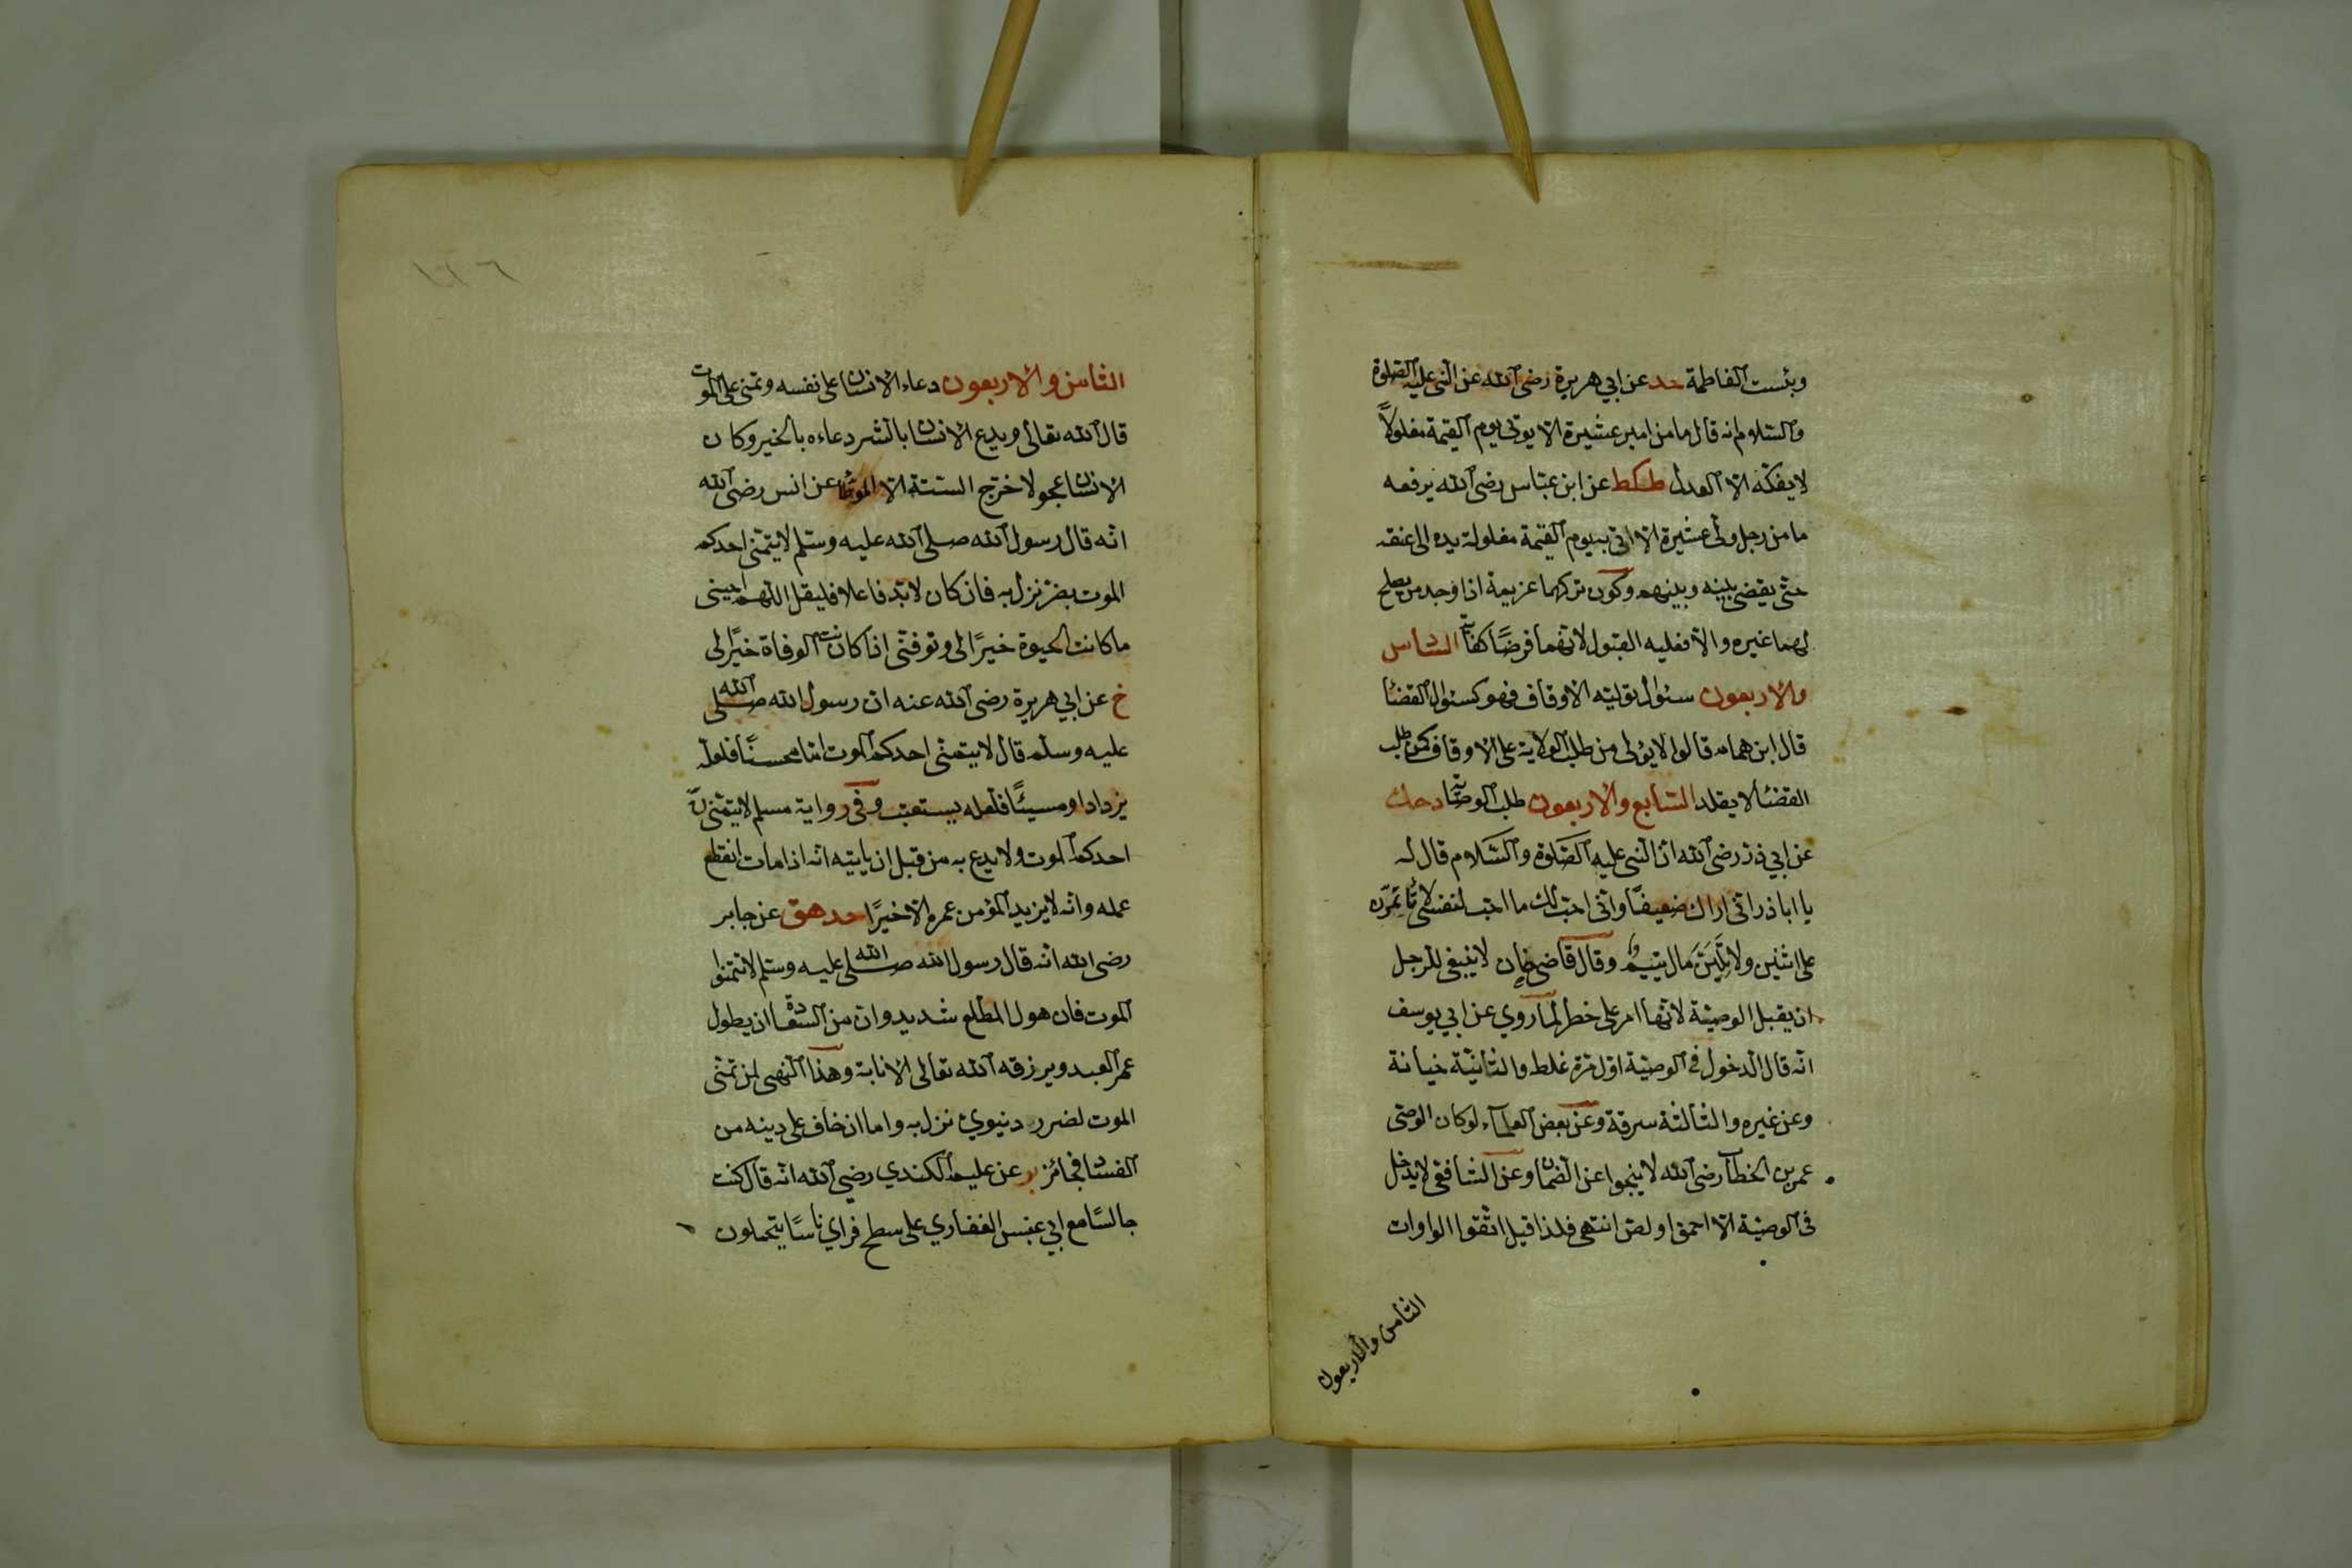 وبئست الفاطمة حد عن ابي هريرة رضى الله عن النبى عليه الصلوة
والسلام انه قال ما من امير عشيرة الا يوتى يوم القيمة مغلولاً
لا يفكّه الا العدل طكط عن ابن عبّاس رضى الله يرفعه
ما من رجل ولى عشيرة الا اتى به يوم القيمة مغلولة يده الى عنقه
حتى يقضى بينه وبينهم وكون تركهما عزيمة اذا وجد من يصلح
لهما غيره والا فعليه القبول لانهما فرضا كفاية السادس
والاربعون سئوال تولية الاوقاف فهو كسئوال القضا
قال ابن همام قالوا لا يولى من طلب الولاية على الاوقاف كمن طلب
القضا لا يقلد السابع والاربعون طلب الوصاية د حك
عن ابي ذر رضى الله ان النبى عليه الصلوة والسلام قال له
يا ابا ذر انى اراك ضعيفًا وانى احبّ لك ما احبّ لنفسى لا تأمّرنّ
على اثنين ولا تلينّ مال يتيم وقال قاضى خان لا ينبغى للرجل
ان يقبل الوصيّة لانّها امر على خطر لما روي عن ابي يوسف
انّه قال الدخول فى الوصيّة اوّل مرّة غلط والثانيّة خيانة
وعن غيره والثالثة سرقة وعن بعض العلماء لو كان الوصى
عمر بن الخطاب رضى الله لا ينجوا عن الضمان وعن الشافعى لا يدخل
فى الوصيّة الا احمق او لصّ انتهى فلذا قيل اتّقوا الواوات
الثامن والاربعون
الثامن والاربعون دعاء الانسان على نفسه وتمنى على الموت
قال الله تعالى ويدع الانسان بالشر دعاءه بالخير وكان
الانسان عجولا خرّج الستة الا الموطأ عن انس رضى الله
انّه قال رسول الله صلى الله عليه وسلّم لا يتمنّى احدكم
الموت بضرّ نزل به فان كان لا بدّ فاعلا فليقل اللّهم احينى
ما كانت الحيوة خيرًا لى وتوفّنى اذا كانت الوفاة خيرًا لى
خ عن ابي هريرة رضى الله عنه ان رسول الله صلى الله
عليه وسلم قال لا يتمنى احدكم الموت امّا محسنًا فلعلّه
يزداد او مسيئًا فلعله يستعتب وفى رواية مسلم لا يتمنّينّ
احدكم الموت ولا يدع به من قبل ان ياتيه انه اذا مات انقطع
عمله وانه لا يزيد المؤمن عمره الا خيرًا حد هق عن جابر
رضى الله انّه قال رسول الله صلى الله عليه وسلم لا تتمنوا
الموت فان هول المطّلع شديد وان من السعادة ان يطول
عمر العبد ويرزقه الله تعالى الانابة وهذا النهى لمن تمنّى
الموت لضرر دنيوي نزل به واما ان خاف على دينه من
الفساد فجائز بر عن عليم الكندي رضى الله انّه قال كنت
جالسًا مع ابي عبس الغفاري على سطح فراي ناسًا يتحملون
١٢٦